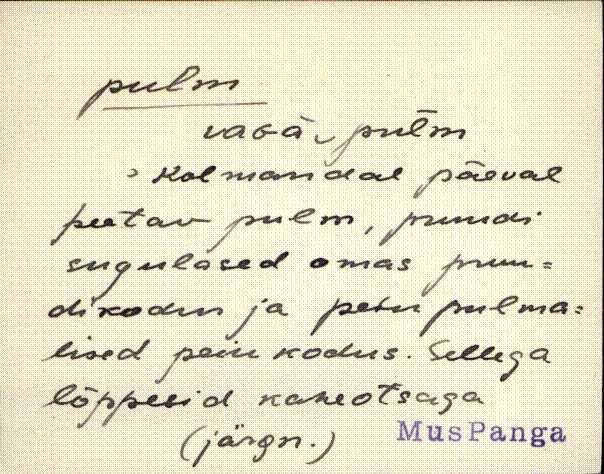 pulm
vaɢà pùlm
Kolmandal päeval
peetav pulm, pruudi
sugulased omas pruu=
dikodus ja peiu pulma=
lised peiu kodus. Sellega
lõppesid kaheotsaga
(järgn.) MusPanga